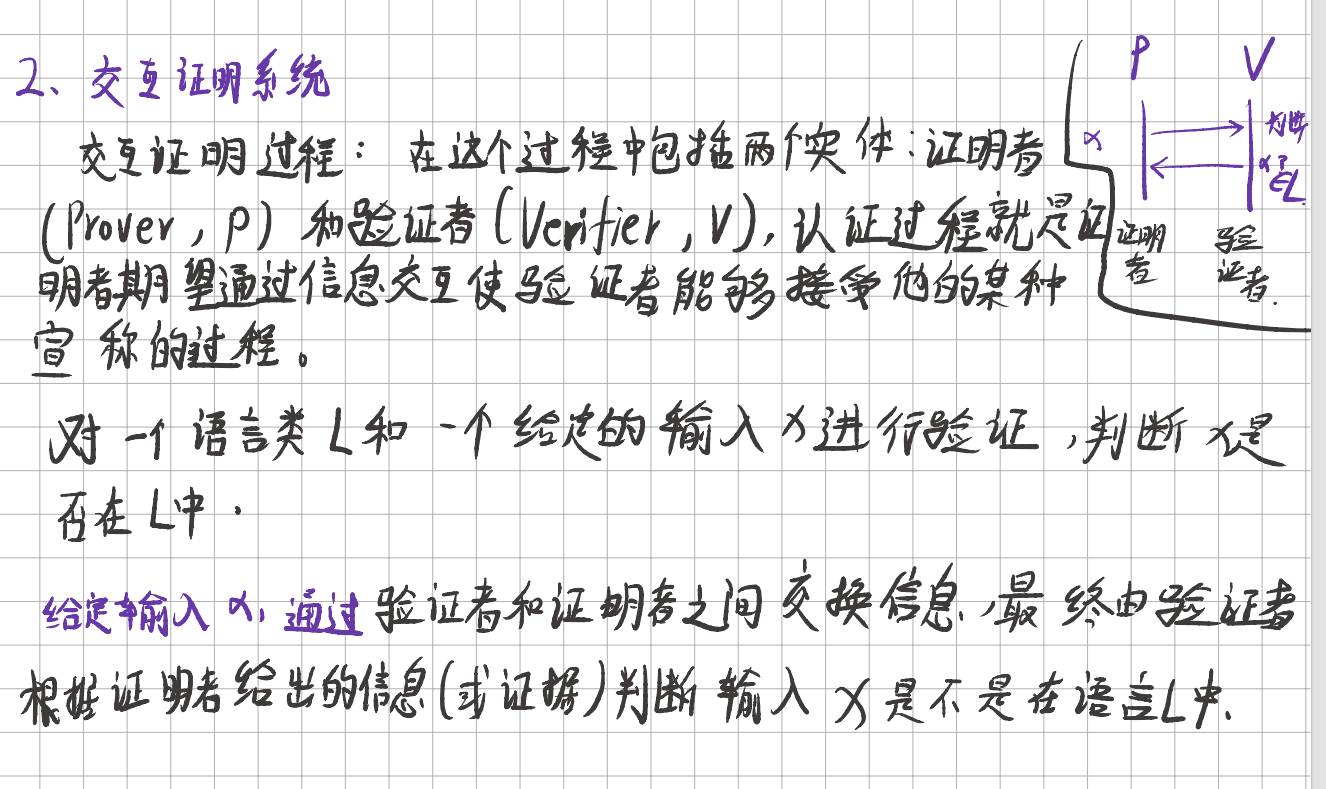 2、交互证明系统
交互证明过程：在这个过程中包括两个实体：证明者
(Prover, P) 和验证者 (Verifier, V), 认证过程就是证
明者期望通过信息交互使验证者能够接受他的某种
宣称的过程。
P V
x 判断
x ?
∈L
证明
者
验
证者.
对一个语言类L和一个给定的输入x进行验证,判断x是
否在L中.
给定输入x, 通过验证者和证明者之间交换信息,最终由验证者
根据证明者给出的信息(或证据)判断输入x是不是在语言L中.